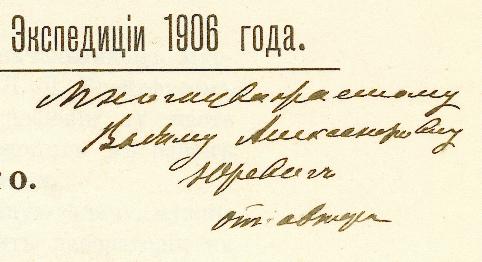 Экспедиціи 1906 года.
Многоуважаемому
Вадиму Александровичу
Юревичъ
отъ автора
о.